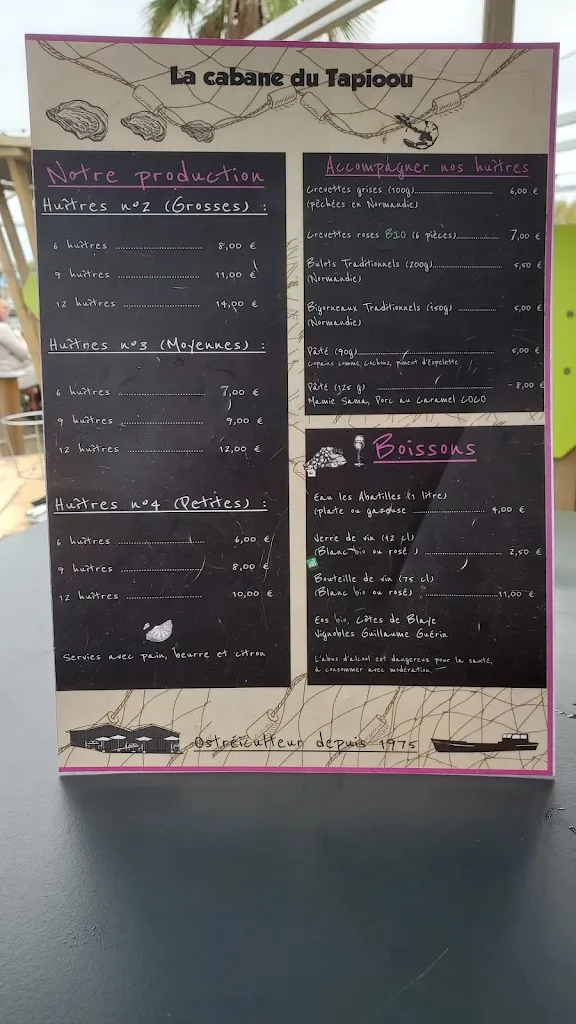 La cabane du Tapioou
Notre production
Huîtres n°2 (Grosses) :
6 huîtres ........................ 8,00 €
9 huîtres ........................ 11,00 €
12 huîtres ........................ 14,00 €
Huîtres n°3 (Moyennes) :
6 huîtres ........................ 7,00 €
9 huîtres ........................ 9,00 €
12 huîtres ........................ 12,00 €
Huîtres n°4 (Petites) :
6 huîtres ........................ 6,00 €
9 huîtres ........................ 8,00 €
12 huîtres ........................ 10,00 €
Servies avec pain, beurre et citron
Accompagner nos huîtres
Crevettes grises (100g)........................ 6,00 €
(pêchées en Normandie)
Crevettes roses BIO (6 pièces)............ 7,00 €
Bulots Traditionnels (200g)........................ 5,50 €
(Normandie)
Bigorneaux Traditionnels (150g) ............ 5,00 €
(Normandie)
Pâté (90g)........................ 5,00 €
Copains comme Cochons, piment d'Espelette
Pâté (125 g) ........................ 8,00 €
Mamie Sama, Porc au Caramel COCO
Boissons
Eau les Abatilles (1 litre)
(plate ou gazeuse ............ 4,00 €
Verre de vin (12 cl)
(Blanc bio ou rosé ) ........................ 2,50 €
Bouteille de vin (75 cl)
(Blanc bio ou rosé) ........................ 11,00 €
Eos bio, Côtes de Blaye
Vignobles Guillaume Guérin
L'abus d'alcool est dangereux pour la santé,
à consommer avec modération
Ostréiculteur depuis 1975